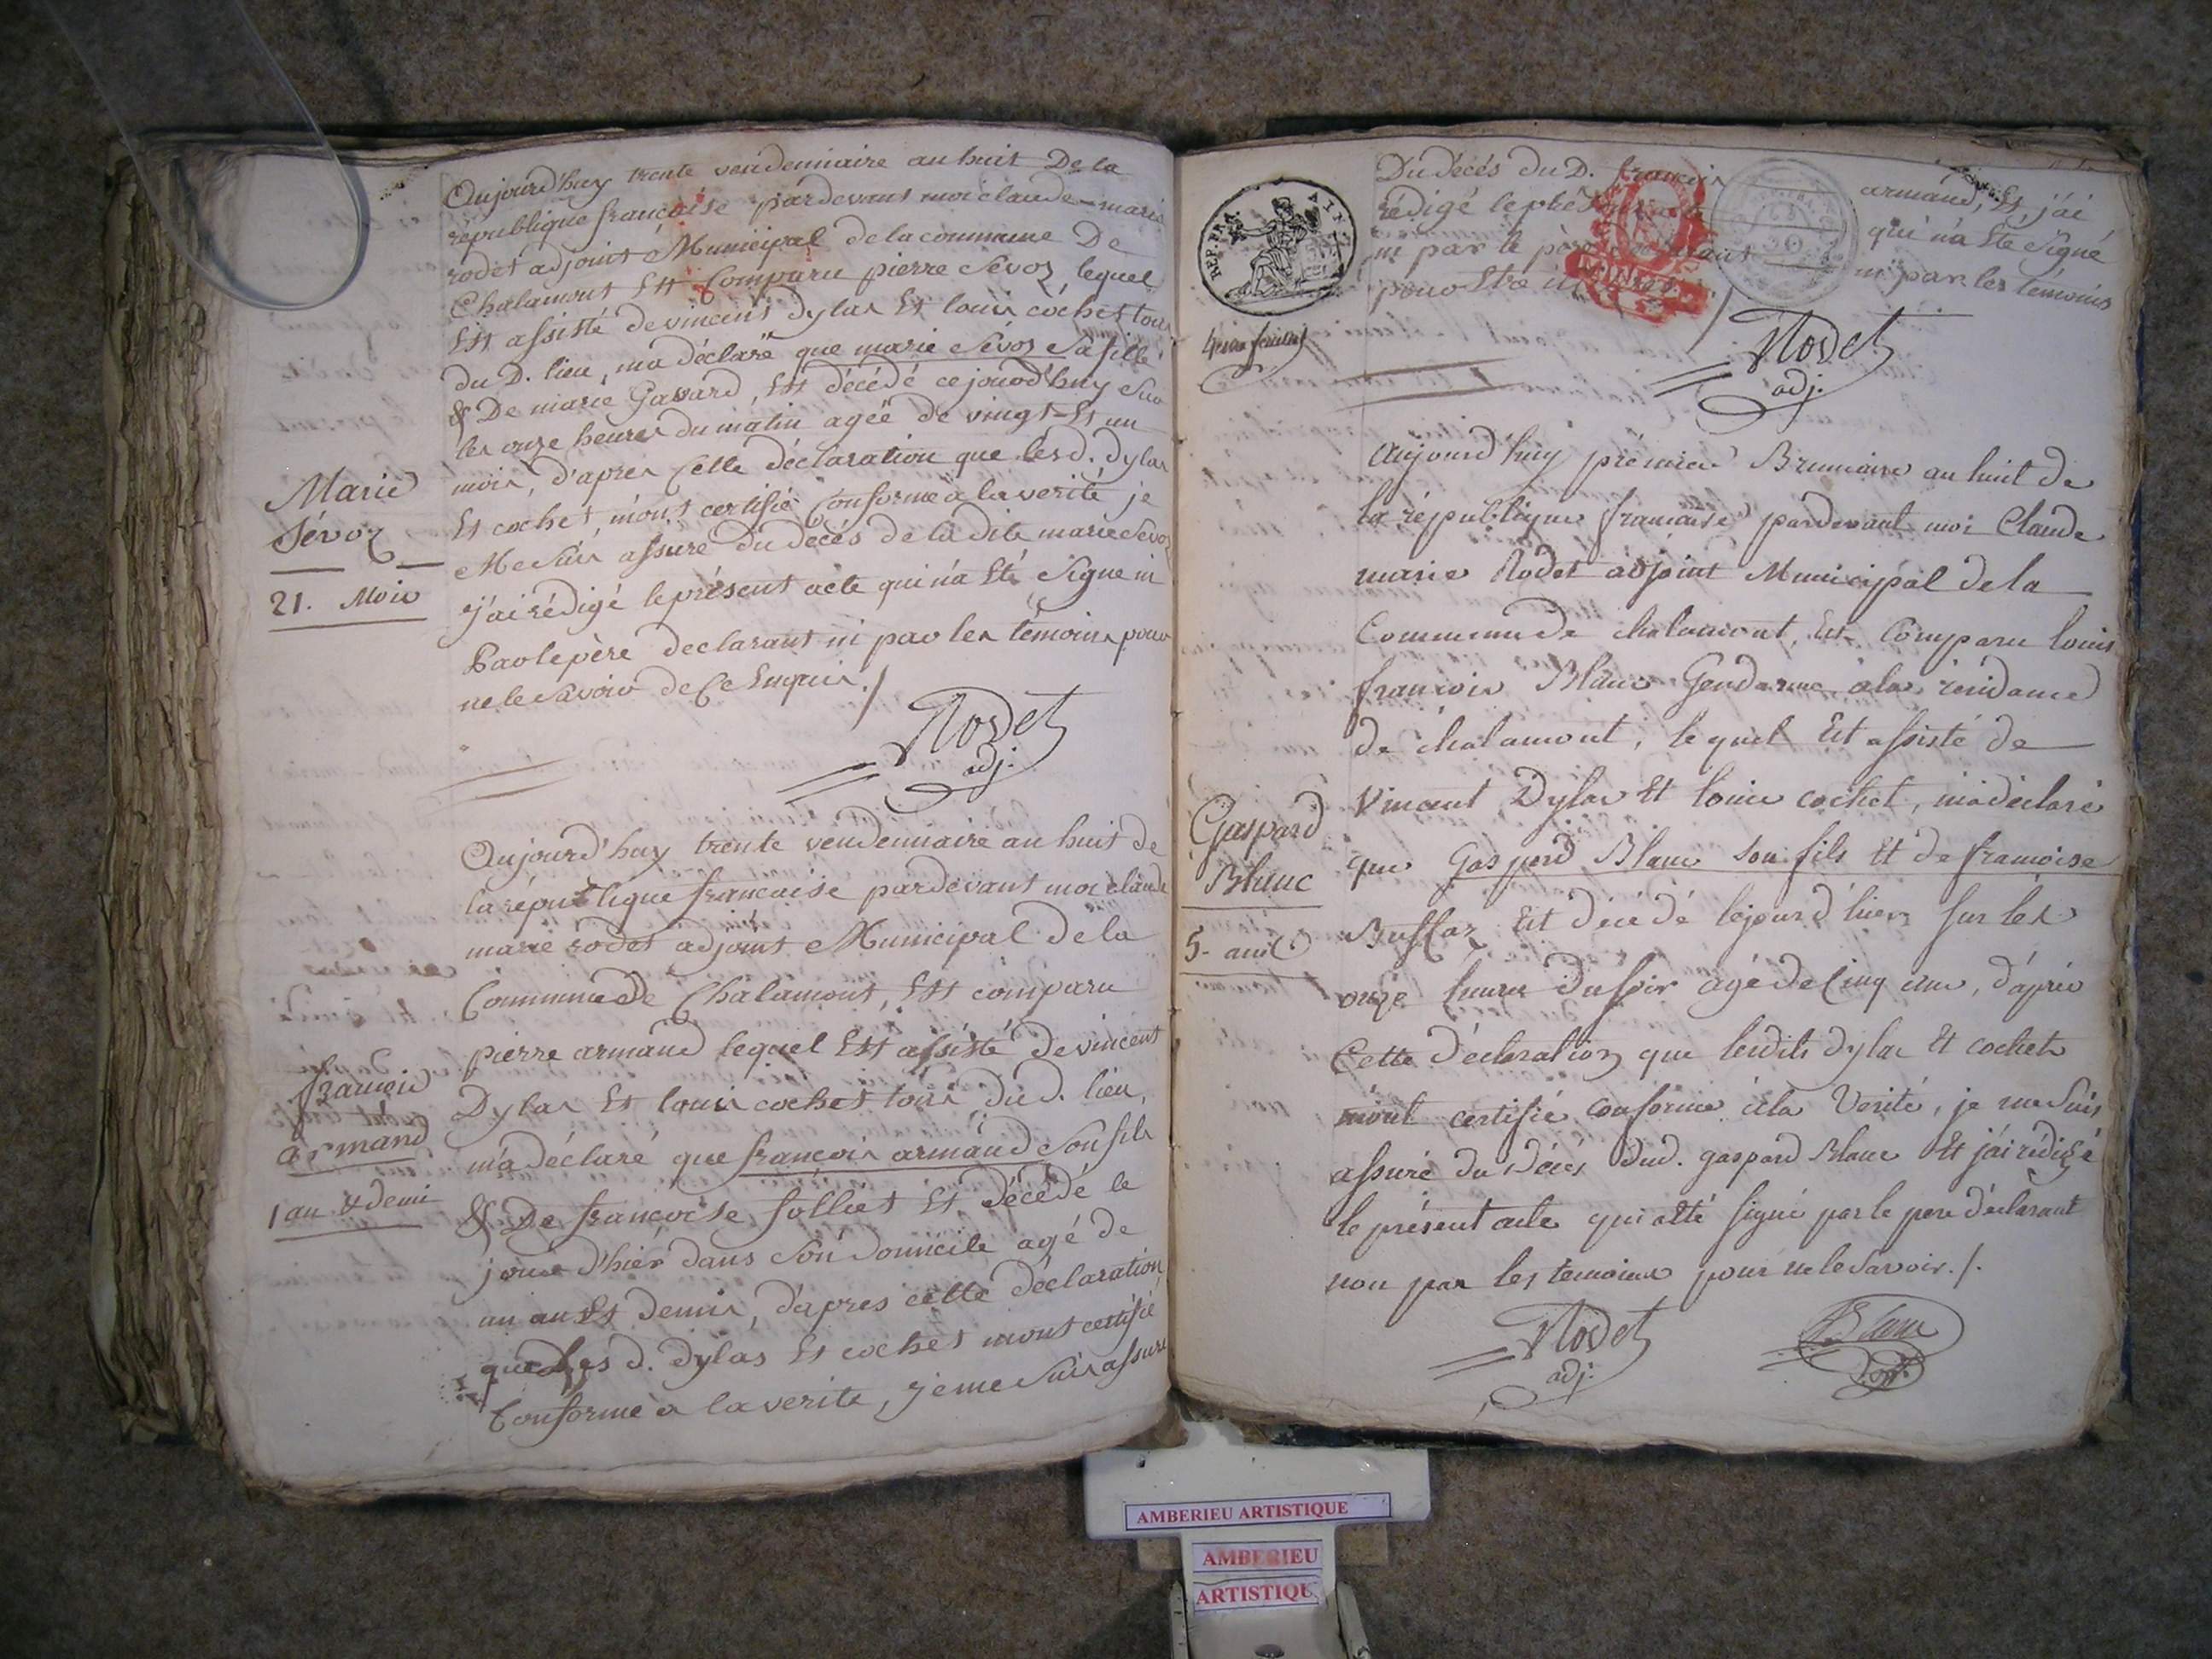 Aujourd'huy trente vendemiaire an huit De la
république française pardevant moi claude-marie
rodet adjoint Municipal de la commune De
Chalamont Est Comparu pierre Sévoz lequel
Est assisté de vincent dylas Et louis cochet tous
du D. lieu, ma déclaré que marie Sévoz Sa fille
& De marie Gavard, Est décédé ce jourd'huy Sur
les onze heures du matin agée de vingt-Et un
mois, d'apres Cette déclaration que les d. dylas
Et cochet, m'ont certifié Conforme a la verité je
Me suis assuré du décés de la dite marie Sévoz
j'ai rédigé le présent acte qui n'a Eté Signe ni
Par le père declarant ni par les témoins pour
ne le Savoir de Ce Enquis ./
Rodet
adj.
Marie
Sévoz
21. Mois
Aujourd'huy trente vendemiaire an huit de
la république francaise pardevant moi claude
marie rodet adjoint Municipal de la
Commune De Chalamont, Est comparu
pierre armand lequel Est assisté de vincent
Dylas Et louis cochet tous du d. lieu,
m'a déclaré que francois armand Son fils
& De francoise folliet Est décédé le
jour d'hiér dans Son Domicile agé de
un an Et demis, d'apres cette déclaration
que Les d. dylas Et cochet mont certifié
Conforme à la verite, je me Suis assuré
francois
armand
1 an & demi
REP. FRA. AIN
Du décés du D. francois armand, Et j'ai
rédigé le qui n'a Eté Signé
ni par le père ni par les témoins
pour Etre
Rodet
adj.
Aujourd'huy prémier Brumaire an huit de
la république francaise pardevant moi Claude
marie Rodet adjoint Municipal de la
Commune de chalamont, Est Comparu louis
francois Blanc Gendarme à la residance
de chalamont, lequel Est assisté de
Vincent Dylas Et louis cochet, m'a déclaré
que Gaspard Blanc Son fils Et de francoise
Est décédé le jour d'hier sur les
onze heures du soir agé de Cinq ans, d'après
Cette déclaration que lesdits dylas Et cochet
m'ont certifié conforme à la Vérité, je me Suis
assuré du Décés dud. gaspard Blanc Et j'ai rédigé
le présent acte qui a été signé par le pere déclarant
non par les temoins pour ne le Savoir. /.
Rodet
adj.
Blanc
Gaspard
Blanc
5. ans
AMBERIEU ARTISTIQUE
AMBERIEU
ARTISTIQU